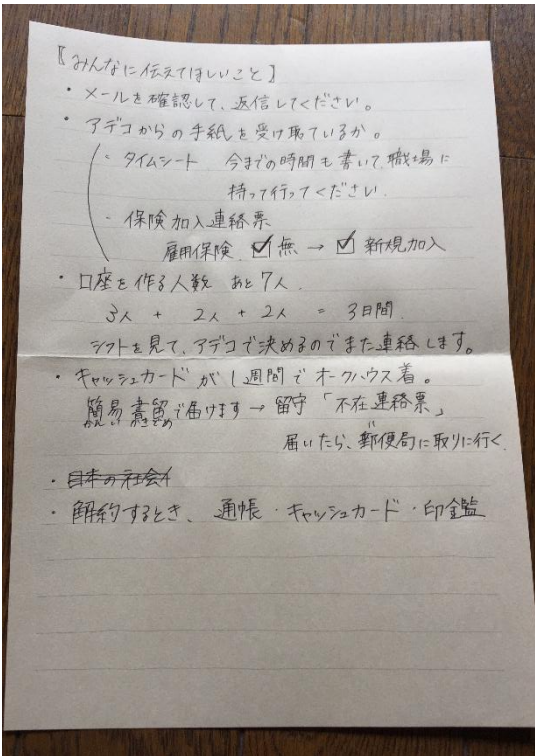 【みんなに伝えてほしいこと】
・メールを確認して、返信してください。
・アデコからの手紙を受け取ているか。
・タイムシート 今までの時間も書いて、職場に
持って行ってください
・保険加入連絡票
雇用保険 ☑無 → ☑ 新規加入
・口座を作る人数 あと7人.
3人 + 2人 + 2人 = 3日間.
シフトを見て、アデコで決めるのでまた連絡します。
・キャッシュカードが1週間でオークハウス着。
簡易書留で届けます→留守「不在連絡票」
かんい かきとめ
届いたら、郵便局に取りに行く.
・日本の社会イ
・解約するとき、通帳・キャッシュカード・印鑑